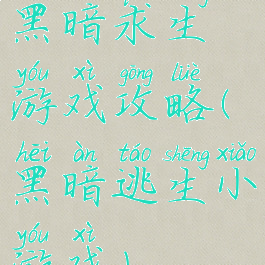 黑暗求生
yóu xì gōng lüè
游戏攻略(
hēi àn táo shēng xiǎo
黑暗逃生小
yóu xì
游戏)